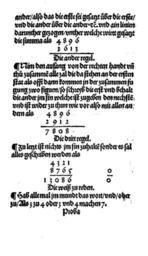 ander/also das die erste sei gesatzt über die erste/
und die ander über die ander ꝛc. und ein linien
darunther gezogen unther welche wirt gesatzt
die summa als 4 8 9 6
2 6 1 3
Die ander regel.
Nim den anfang von der rechten handt un̄
thu zusamme alle zal die da stehen an der ersten
stat als offt dan kommen in der zusammen
gung zwo figurn/so schreib die erst und behalt
die ander im sin welche ist zugeben den nechstē
und ist under zu thun wie vor also mit allen an
dern als
4 8 9 6
2 9 1 2
7 8 0 8
Die drit regel.
Zu letzt ist nichts im sin zubehalten sonder es sal
alles geschreben werden als
4 3 2 1
8 7 6 5 0
1 3 0 8 6 0
Die weiß zu reden.
Hab alle mal im mundt das wort/und/oder
zu/Als 3 zu 4 oder 3 und 4 machen 7.
Proba